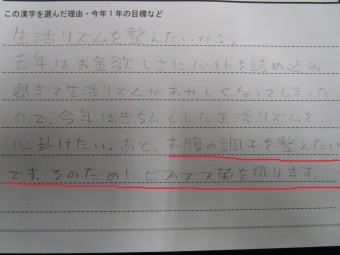 この漢字を選んだ理由・今年1年の目標など
生活リズムを整えたいから。
去年はお金欲しさにバイトを詰め込み
過ぎて生活リズムがおかしくなってしまった
ので、今年はきちんとした生活リズムを
心掛けたい。あと、お腹の調子を整えたい
です。そのためにビフィズス菌を摂ります。